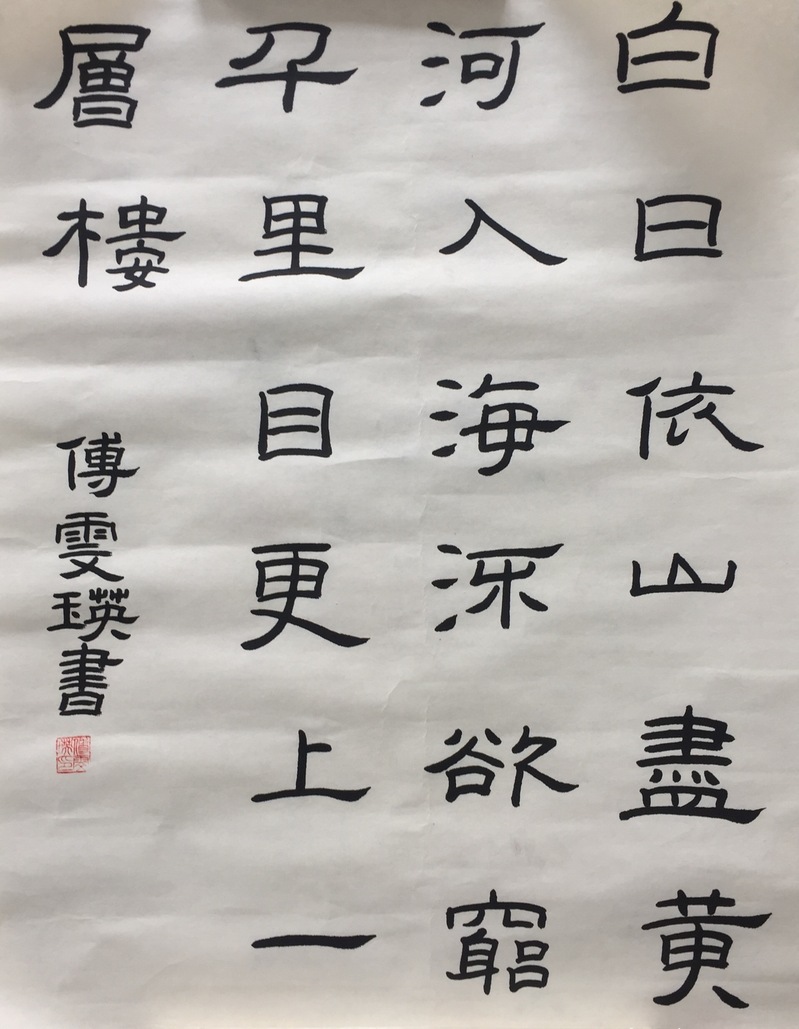 白日依山盡黃
河入海流欲窮
千里目更上一
層樓
傅雯瑛書